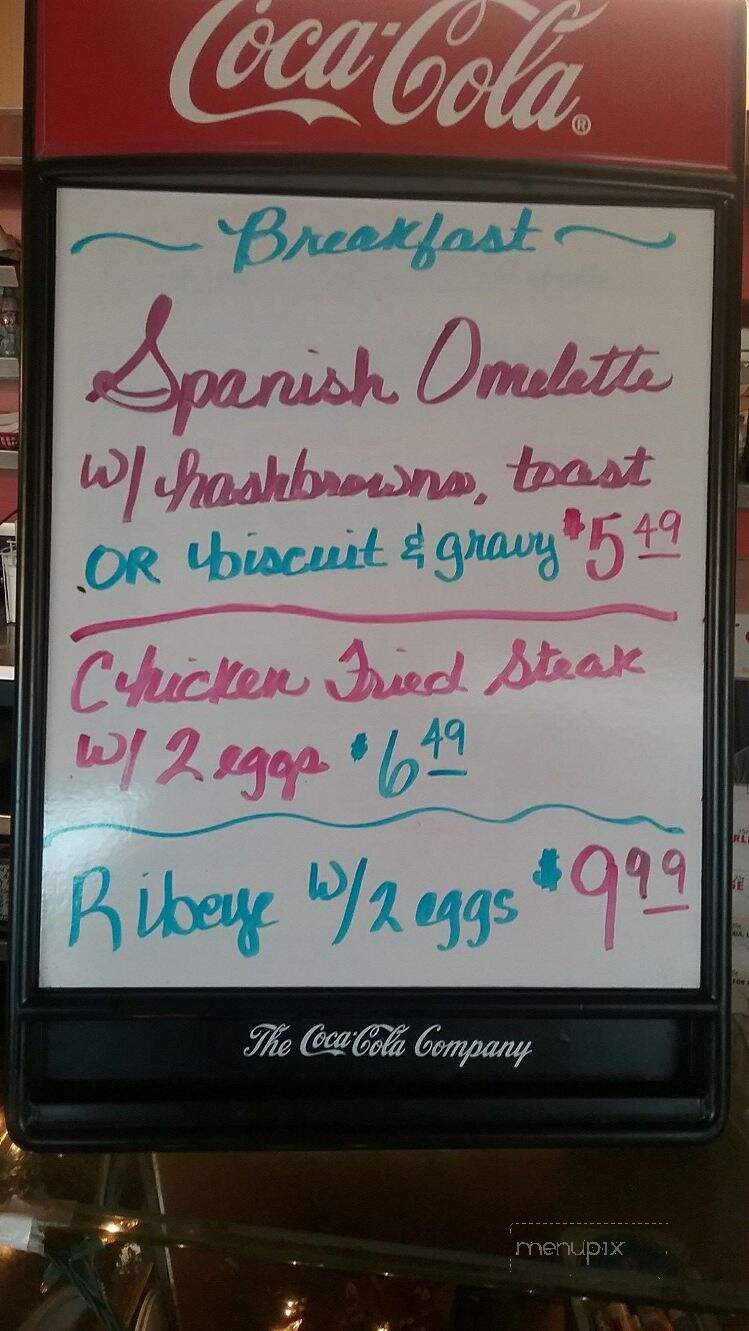 Coca-Cola®
~ Breakfast ~
Spanish Omelette
w/ hashbrowns, toast
OR biscuit & gravy $5 49
Chicken Fried Steak
w/ 2 eggs $6 49
Ribeye w/2 eggs $9 99
The Coca-Cola Company
menupix